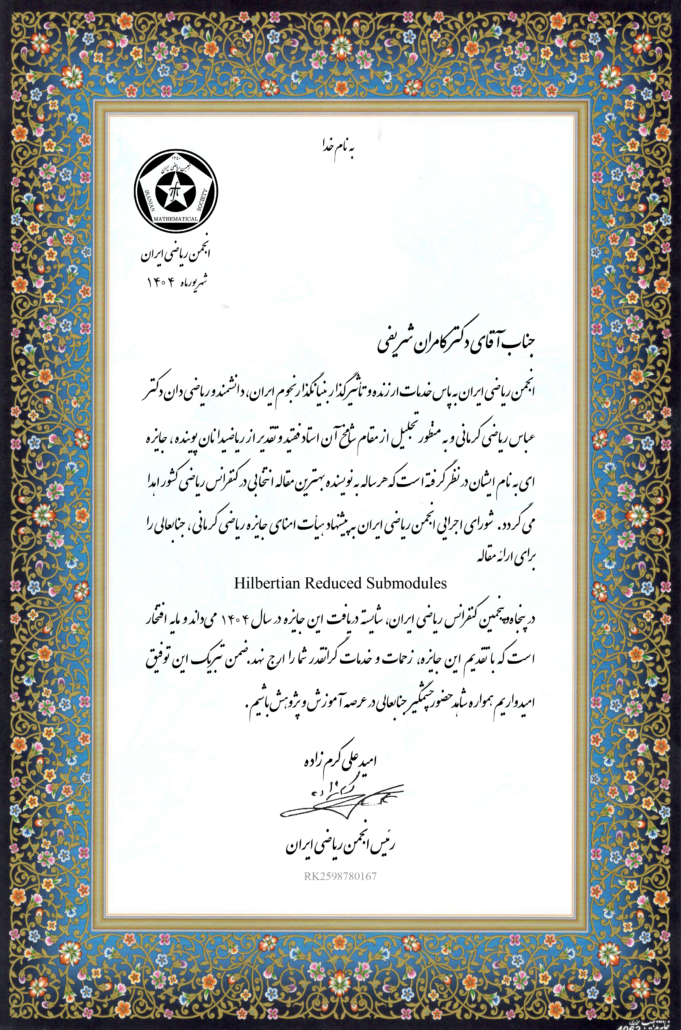 به نام خدا
۱۳۵۰
انجمن ریاضی ایران
IRANIAN MATHEMATICAL SOCIETY
انجمن ریاضی ایران
شهریورماه ۱۴۰۴
جناب آقای دکتر کامران شریفی
انجمن ریاضی ایران به پاس خدمات ارزنده و تأثیرگذار بنیانگذار نجوم ایران، دانشمند و ریاضی دان دکتر
عباس ریاضی کرمانی و به منظور تجلیل از مقام شامخ آن استاد فقید و تقدیر از ریاضیدانان پوینده، جایزه
ای به نام ایشان در نظر گرفته است که هر ساله به نویسنده بهترین مقاله انتخابی در کنفرانس ریاضی کشور اهدا
می گردد. شورای اجرایی انجمن ریاضی ایران به پیشنهاد هیأت امنای جایزه ریاضی کرمانی، جنابعالی را
برای ارائه مقاله
Hilbertian Reduced Submodules
در پنجاه و پنجمین کنفرانس ریاضی ایران، شایسته دریافت این جایزه در سال ۱۴۰۴ می‌داند و مایه افتخار
است که با تقدیم این جایزه، زحمات و خدمات گرانقدر شما را ارج نهد. ضمن تبریک این توفیق
امیدواریم همواره شاهد حضور چشمگیر جنابعالی در عرصه آموزش و پژوهش باشیم.
امید علی کرم زاده
رئیس انجمن ریاضی ایران
RK2598780167